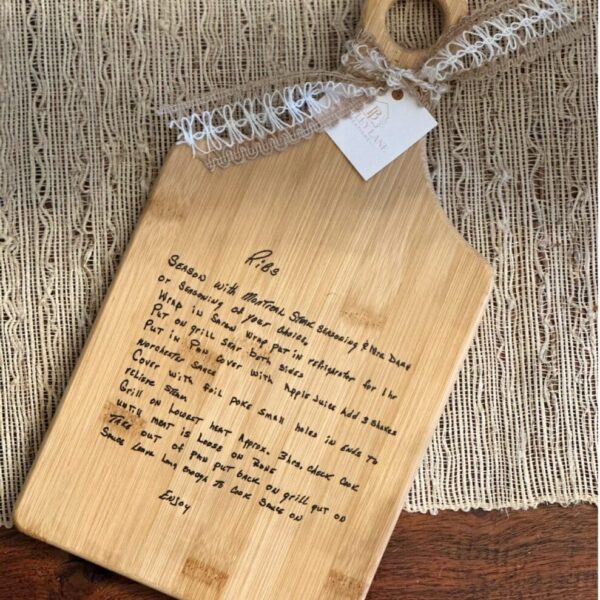 B
LANE
Ribs
Season with Montreal Steak seasoning & Nick Dare
or seasoning of your choice,
Wrap in Saran wrap put in refrigerator for 1 hr
Put on grill sear both sides
Put in Pan cover with Apple Juice Add 3 shakes
worchester sauce
Cover with foil poke small holes in ends to
relieve steam
Grill on lowest heat Approx. 3 hrs, check cook
until meat is loose on bone
Take out of pan put back on grill put on
Sauce leave long enough to cook sauce on
Enjoy